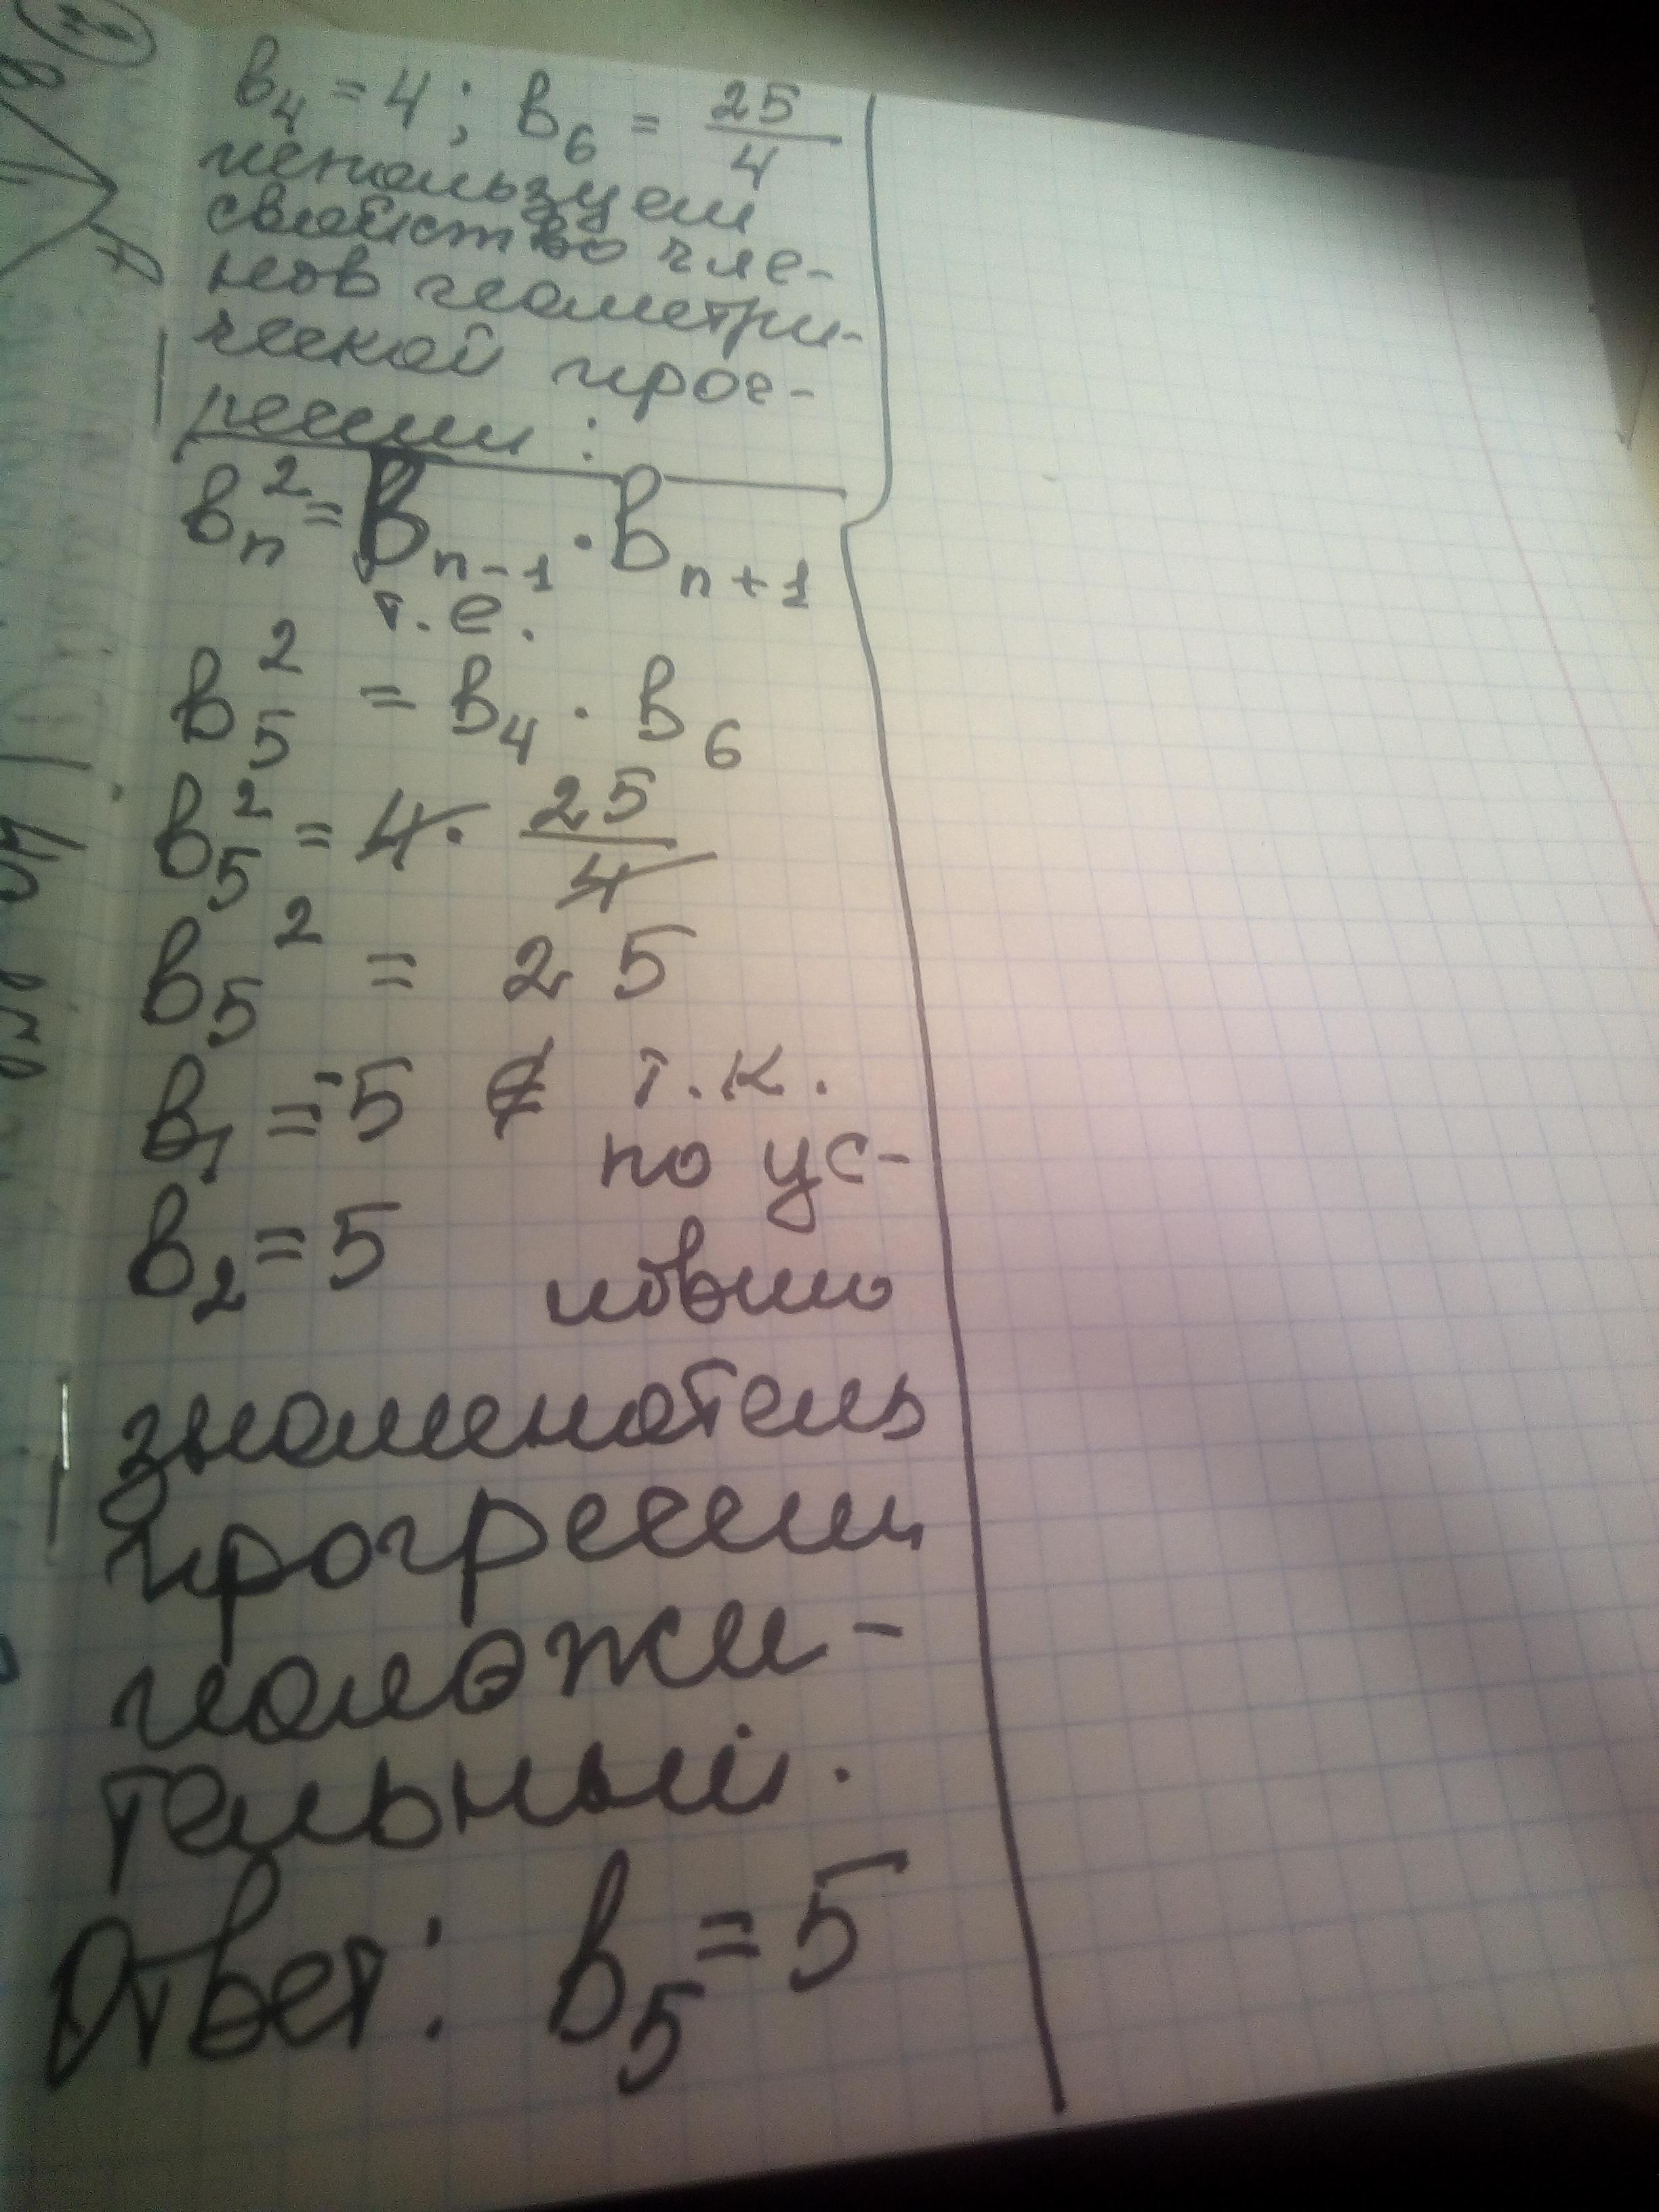 в₄ = 4 ; в₆ = 25/4
используем
свойство чле-
нов геометри-
ческой прог-
рессии :
вₙ² = вₙ₋₁ · вₙ₊₁
т.е.
в₅² = в₄ · в₆
в₅² = 4 · 25/4
в₅² = 25
в₁ = -5 ∉ т.к.
по ус-
в₂ = 5
ловию
знаменатель
прогрессии
положи-
тельный.
Ответ: в₅ = 5